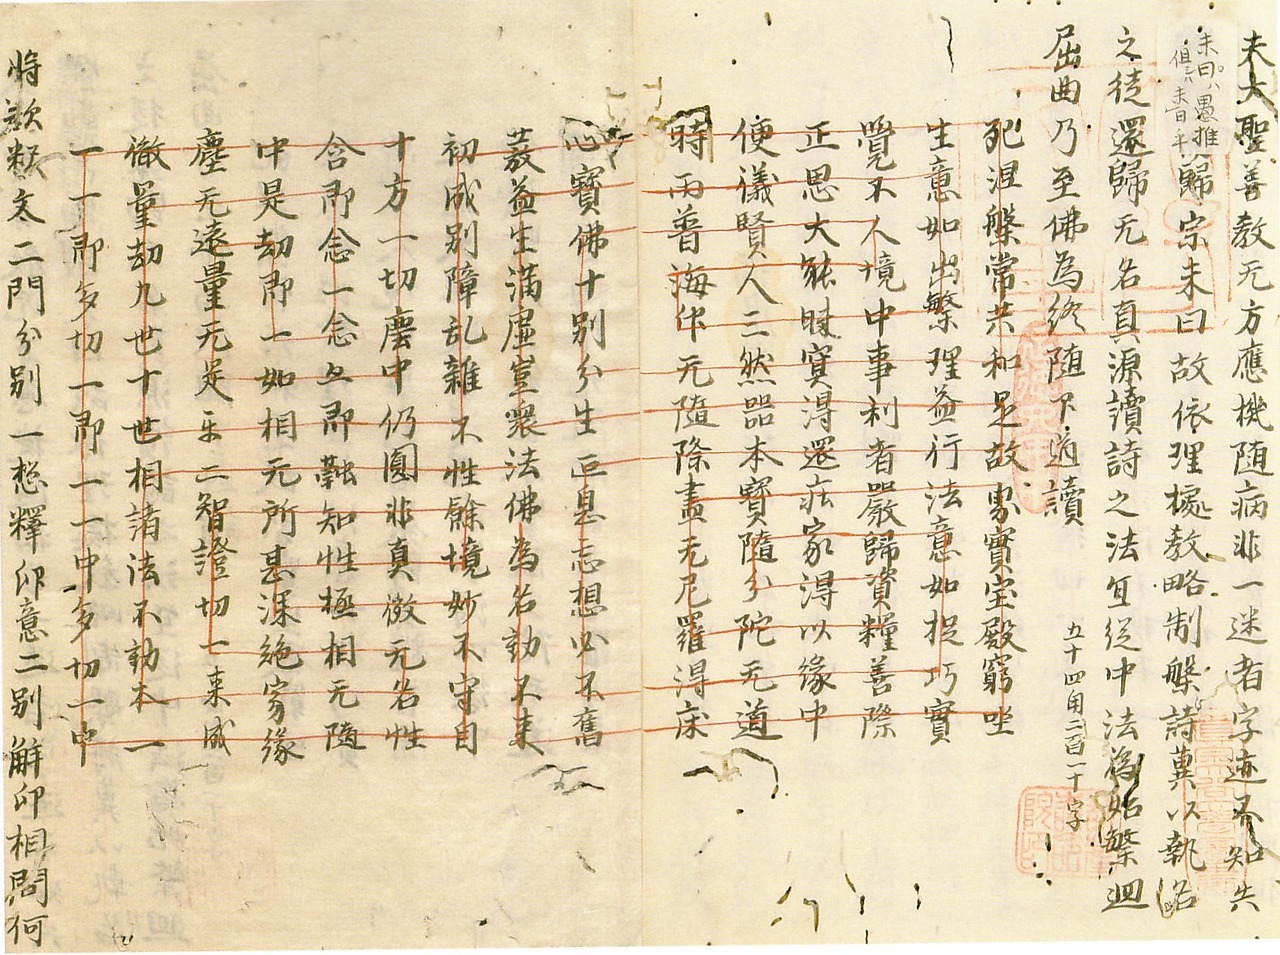 夫大聖善教无方應機随病非一迷者字迹不知失
歸宗未曰故依理㨿教略制槃詩冀以執名
之徒還歸无名真源讀詩之法宜從中法為始繁迴
屈曲乃至佛為終随下迹讀
五十四角二百一十字
死涅槃常共和是故界實宝殿窮坐
生意如出繁理益行法意如捉巧實
覺不人境中事利者嚴歸資糧善際
正思大能冥得還在家得以緣中
便儀賢人二然器本寶隨分陀无道
時雨普海仁无隨際盡无尼羅得床
心寶佛十別分生叵息忘想必不舊
議益生滿虛空衆法佛為名動不来
初成别障乱雜不性餘境妙不守自
十方一切塵中仍圓非真微无名性
含即念一念亦即融知性極相无隨
中是劫即一如相无所甚深絶家緣
塵无遠量无是二智證切一来成
微量劫九世十世相諸法不動本一
一一即多切一即一一中多切一中
將欲釋文二門分别一惣釋印意二别解印相問何